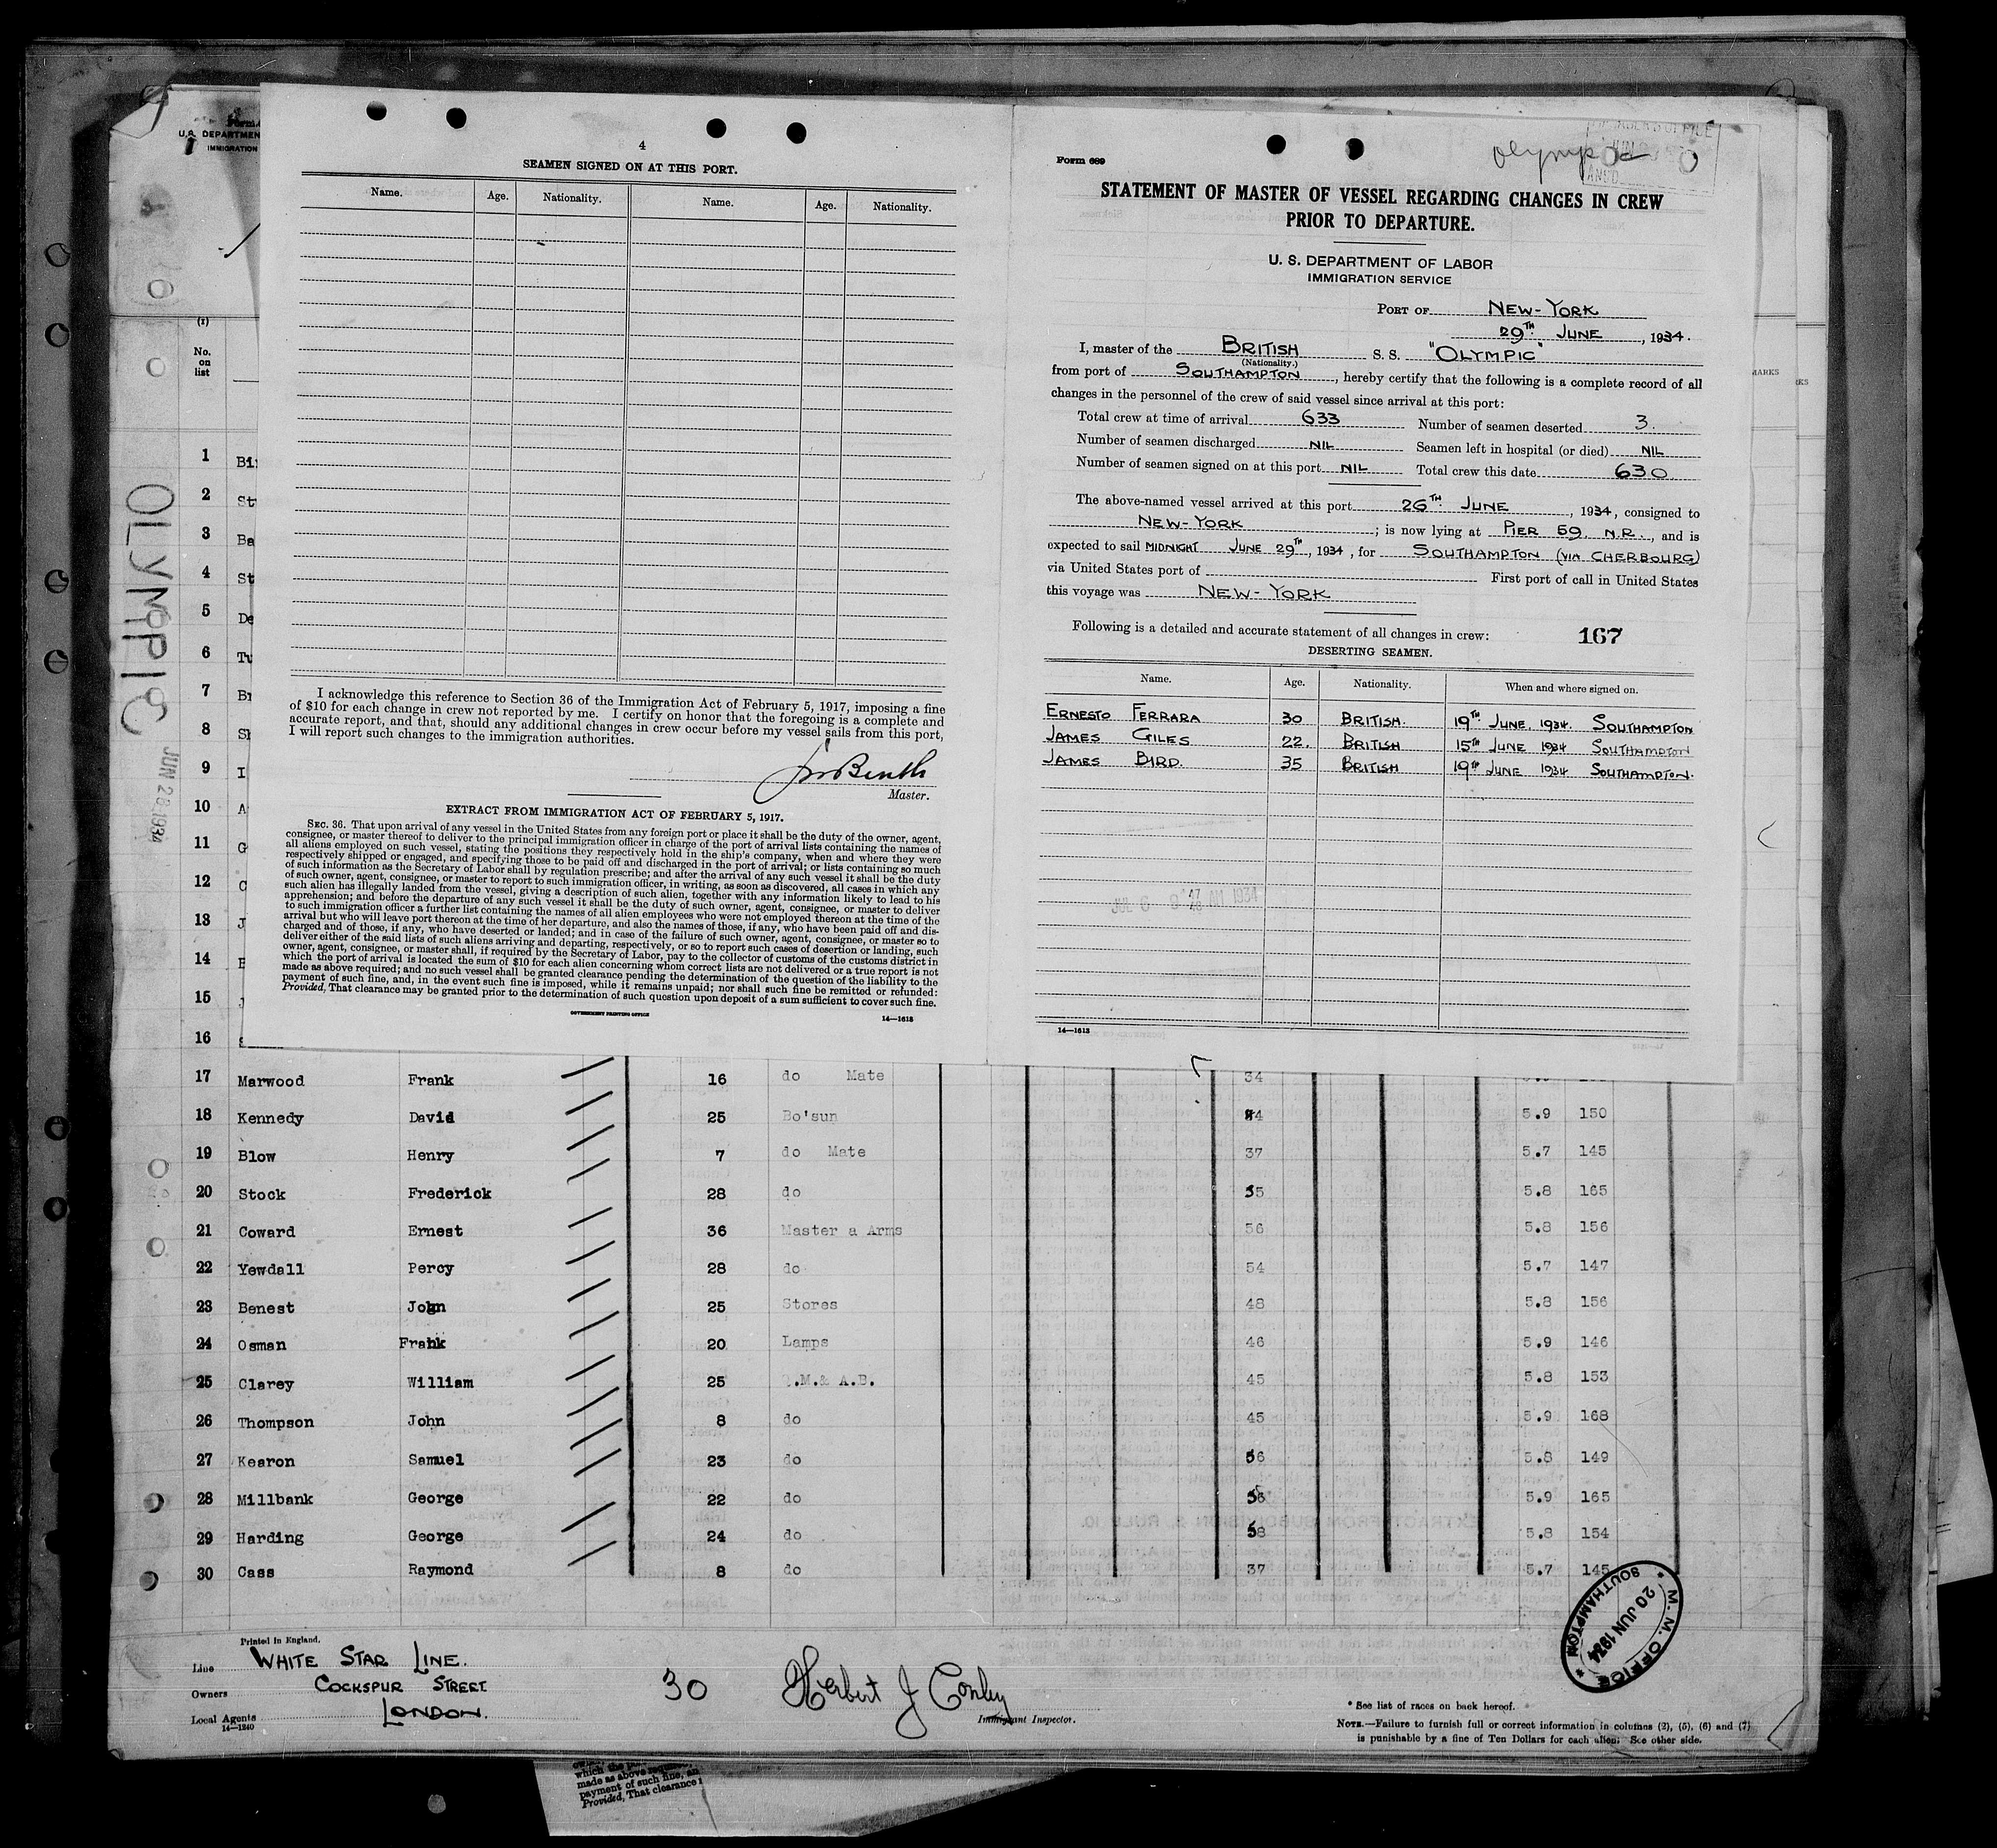 U.S. DEPARTMEN
IMMIGRATION
(1)
No.
on
list
OLYMPIC
JUN 26 1934
4
SEAMEN SIGNED ON AT THIS PORT.
Name. Age. Nationality. Name. Age. Nationality.
I acknowledge this reference to Section 36 of the Immigration Act of February 5, 1917, imposing a fine
of $10 for each change in crew not reported by me. I certify on honor that the foregoing is a complete and
accurate report, and that, should any additional changes in crew occur before my vessel sails from this port,
I will report such changes to the immigration authorities.
Master.
EXTRACT FROM IMMIGRATION ACT OF FEBRUARY 5, 1917.
SEC. 36. That upon arrival of any vessel in the United States from any foreign port or place it shall be the duty of the owner, agent,
consignee, or master thereof to deliver to the principal immigration officer in charge of the port of arrival lists containing the names of
all aliens employed on such vessel, stating the positions they respectively hold in the ship's company, when and where they were
respectively shipped or engaged, and specifying those to be paid off and discharged in the port of arrival; or lists containing so much
of such information as the Secretary of Labor shall by regulation prescribe; and after the arrival of any such vessel it shall be the duty
of such owner, agent, consignee, or master to report to such immigration officer, in writing, as soon as discovered, all cases in which any
such alien has illegally landed from the vessel, giving a description of such alien, together with any information likely to lead to his
apprehension; and before the departure of any such vessel it shall be the duty of such owner, agent, consignee, or master to deliver
to such immigration officer a further list containing the names of all alien employees who were not employed thereon at the time of the
arrival but who will leave port thereon at the time of her departure, and also the names of those, if any, who have been paid off and dis-
charged and of those, if any, who have deserted or landed; and in case of the failure of such owner, agent, consignee, or master so to
deliver either of the said lists of such aliens arriving and departing, respectively, or so to report such cases of desertion or landing, such
owner, agent, consignee, or master shall, if required by the Secretary of Labor, pay to the collector of customs of the customs district in
which the port of arrival is located the sum of $10 for each alien concerning whom correct lists are not delivered or a true report is not
made as above required; and no such vessel shall be granted clearance pending the determination of the question of the liability to the
payment of such fine, and, in the event such fine is imposed, while it remains unpaid; nor shall such fine be remitted or refunded:
Provided, That clearance may be granted prior to the determination of such question upon deposit of a sum sufficient to cover such fine.
GOVERNMENT PRINTING OFFICE 14—1613
Form 689
Olympic
STATEMENT OF MASTER OF VESSEL REGARDING CHANGES IN CREW
PRIOR TO DEPARTURE.
U. S. DEPARTMENT OF LABOR
IMMIGRATION SERVICE
PORT OF NEW-YORK
29TH JUNE, 1934.
I, master of the BRITISH S. S. "OLYMPIC"
(Nationality.)
from port of SOUTHAMPTON, hereby certify that the following is a complete record of all
changes in the personnel of the crew of said vessel since arrival at this port:
Total crew at time of arrival 633 Number of seamen deserted 3.
Number of seamen discharged NIL Seamen left in hospital (or died) NIL
Number of seamen signed on at this port NIL Total crew this date 630
The above-named vessel arrived at this port 26TH JUNE, 1934, consigned to
NEW-YORK; is now lying at PIER 59. N.R., and is
expected to sail MIDNIGHT JUNE 29TH, 1934, for SOUTHAMPTON (VIA CHERBOURG)
via United States port of First port of call in United States
this voyage was NEW-YORK
Following is a detailed and accurate statement of all changes in crew: 167
DESERTING SEAMEN.
Name. Age. Nationality. When and where signed on.
ERNESTO FERRARA 30 BRITISH. 19TH JUNE. 1934. SOUTHAMPTON
JAMES GILES 22. BRITISH 15TH JUNE 1934 SOUTHAMPTON
JAMES BIRD. 35 BRITISH 19TH JUNE 1934 SOUTHAMPTON.
14—1613
MARKS
1 Bi
2 St
3 Ba
4 St
5 De
6 Tu
7 Br
8 Sh
9 I
10 A
11 G
12 C
13 J
14 E
15 J
16 S
17 Marwood Frank 16 do Mate 34
18 Kennedy David 25 Bo'sun 44 5.9 150
19 Blow Henry 7 do Mate 37 5.7 145
20 Stock Frederick 28 do 55 5.8 165
21 Coward Ernest 36 Master a Arms 56 5.8 156
22 Yewdall Percy 28 do 54 5.7 147
23 Benest John 25 Stores 48 5.8 156
24 Osman Frank 20 Lamps 46 5.9 146
25 Clarey William 25 .M.& A.B. 45 5.8 153
26 Thompson John 8 do 45 5.9 168
27 Kearon Samuel 23 do 56 5.8 149
28 Millbank George 22 do 5.9 165
29 Harding George 24 do 58 5.8 154
30 Cass Raymond 8 do 37 5.7 145
M. M. OFFICE
20 JUN 1934
SOUTHAMPTON
Printed in England.
Line WHITE STAR LINE.
Owners COCKSPUR STREET
Local Agents LONDON.
14—1240
30
Herbert J Conley
Immigrant Inspector.
* See list of races on back hereof.
NOTE.—Failure to furnish full or correct information in columns (2), (5), (6) and (7)
is punishable by a fine of Ten Dollars for each alien. See other side.
which the
made as above require
payment of such fine, an
Provided, That clearance